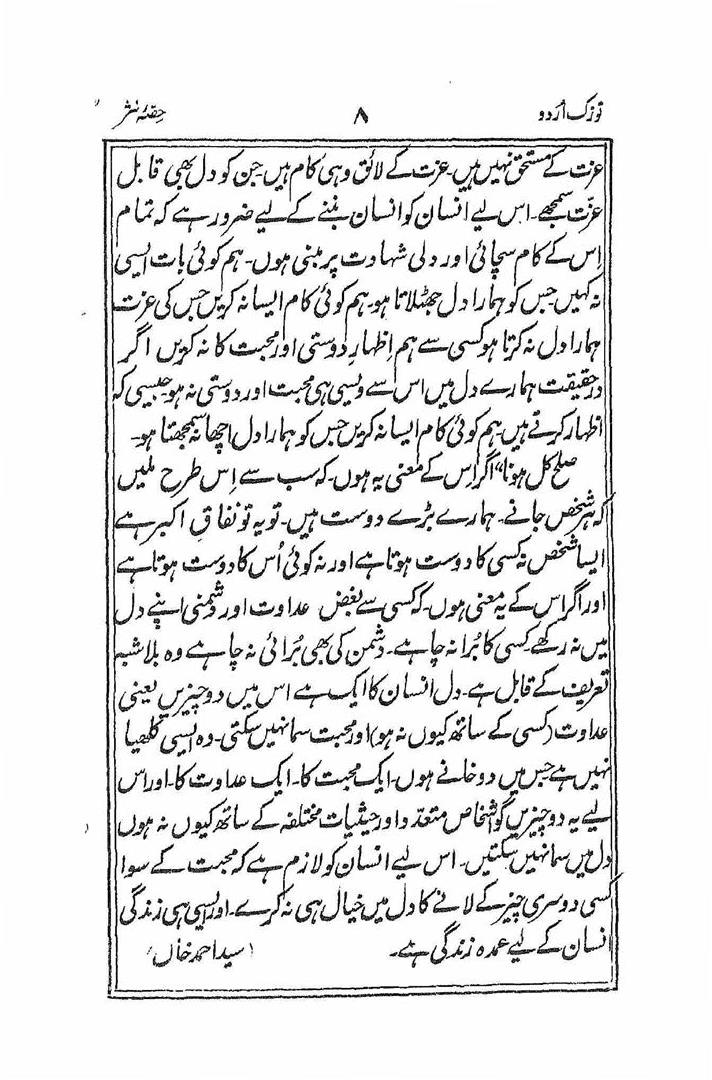 توزک اُردو ۸ حِصّۂ نثر
عزت کے مستحق نہیں ہیں۔ عزت کے لائق وہی کام ہیں جن کو دل بھی قابل
عزت سمجھے۔ اس لیے انسان کو انسان بننے کے لیے ضرور ہے کہ تمام
اِس کے کام سچائی اور دلی شہادت پر مبنی ہوں۔ ہم کوئی بات ایسی
نہ کہیں جس کو ہمارا دل جھٹلاتا ہو۔ ہم کوئی کام ایسا نہ کریں جس کی عزت
ہمارا دل نہ کرتا ہو کسی سے ہم اِظہارِ دوستی اور محبت کا نہ کریں اگر
درحقیقت ہمارے دل میں اس سے ویسی ہی محبت اور دوستی نہ ہو جیسی کہ
اظہار کرتے ہیں۔ ہم کوئی کام ایسا نہ کریں جس کو ہمارا دل اچھا نہ سمجھتا ہو۔
صلح کل ہونا" اگر اس کے معنی یہ ہوں۔ کہ سب سے اِس طرح ملیں
کہ ہر شخص جانے۔ ہمارے بڑے دوست ہیں۔ تو یہ تو نفاقِ اکبر ہے
ایسا شخص نہ کسی کا دوست ہوتا ہے اور نہ کوئی اُس کا دوست ہوتا ہے
اور اگر اس کے یہ معنی ہوں۔ کہ کسی سے بغض عداوت اور دشمنی اپنے دل
میں نہ رکھے۔ کسی کا بُرا نہ چاہے۔ دشمن کی بھی بُرائی نہ چاہے وہ بلاشبہ
تعریف کے قابل ہے۔ دل انسان کا ایک ہے اس میں دو چیزیں یعنی
عداوت (کسی کے ساتھ کیوں نہ ہو) اور محبت سما نہیں سکتی۔ وہ ایسی کلھیا
نہیں ہے جس میں دو خانے ہوں۔ ایک محبت کا۔ ایک عداوت کا۔ اور اس
لیے یہ دو چیزیں گو اشخاص متعدّد اور حیثیات مختلفہ کے ساتھ کیوں نہ ہوں
دل میں سما نہیں سکتیں۔ اس لیے انسان کو لازم ہے کہ محبت کے سوا
کسی دوسری چیز کے لانے کا دل میں خیال ہی نہ کرے۔ اور ایسی ہی زندگی
انسان کے لیے عمدہ زندگی ہے۔ (سید احمد خاں)